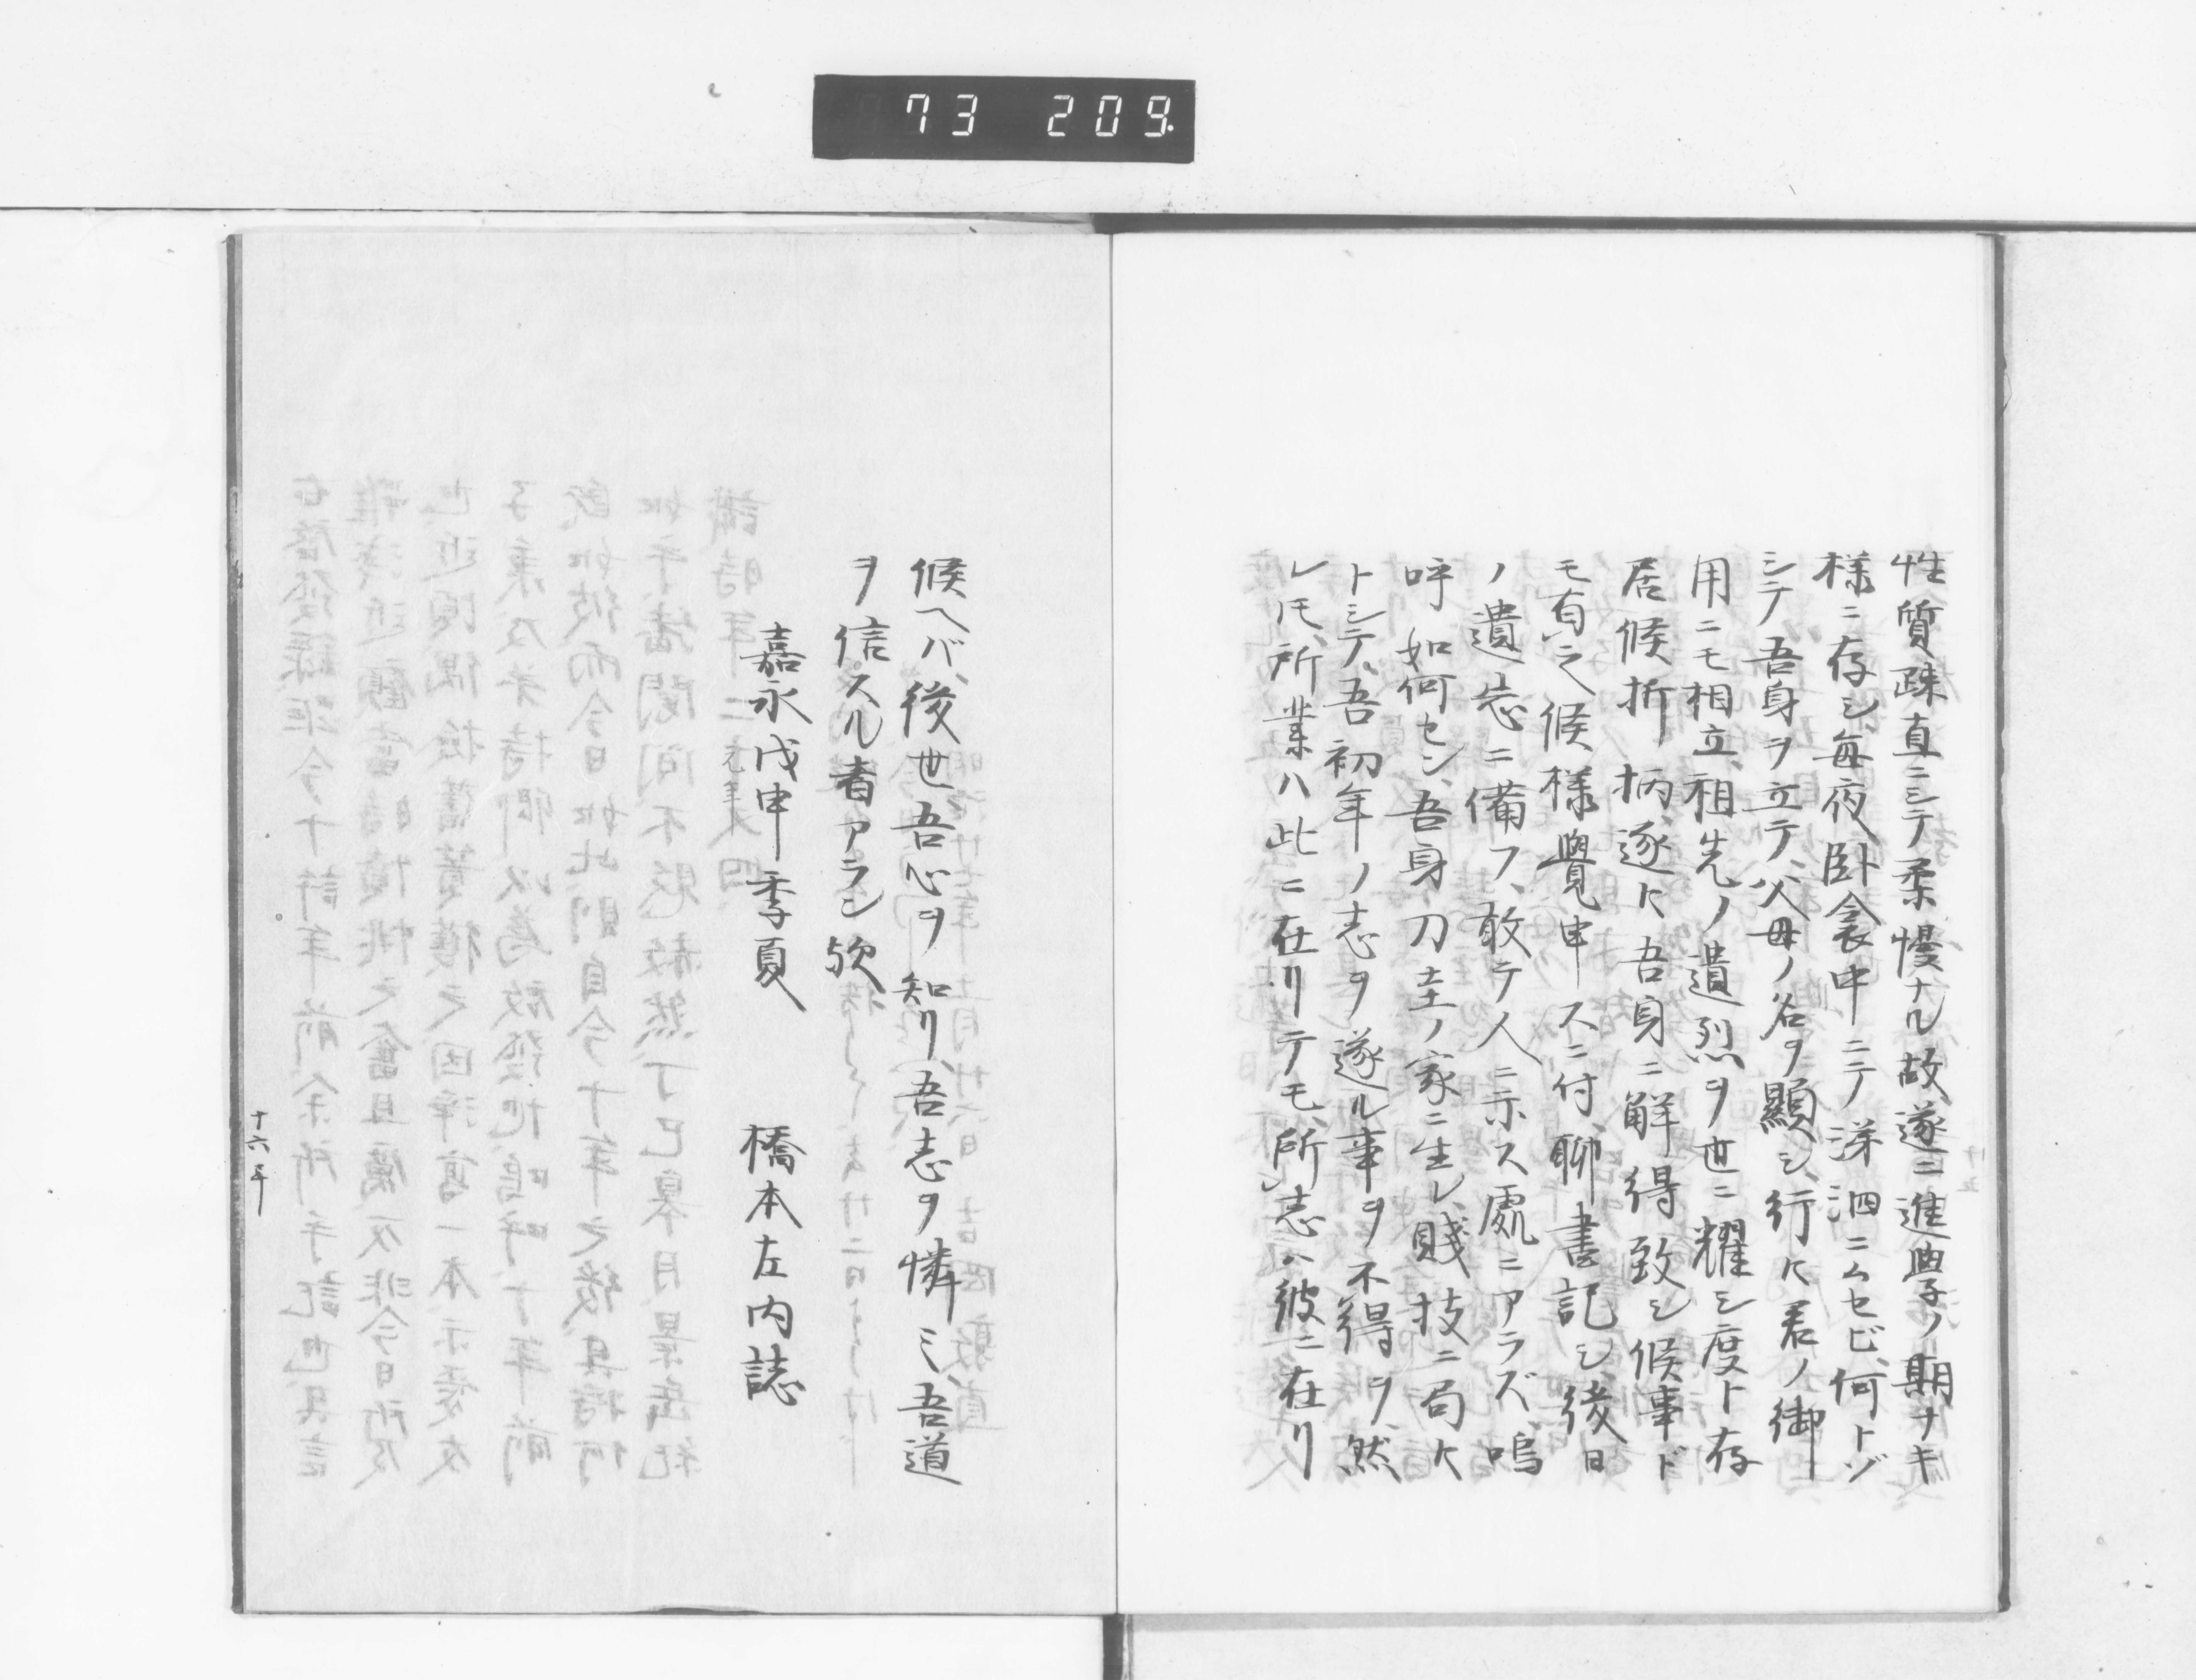 73 209.
性質疎直ニシテ柔慢ナル故遂ニ進學ノ期ナキ
様ニ存シ、毎夜臥衾中ニテ涕泗ニムセビ、何トゾ
シテ吾身ヲ立テ、父母ノ名ヲ顯シ、行ﾍ君ノ御
用ニモ相立、祖先ノ遺烈ヲ世ニ耀シ度ト存
居候折柄、逐ﾍ吾身ニ解得致シ候事ド
モ有之候様覺申スニ付、聊書記シ、後日
ノ遺忘ニ備フ、敢テ人ニ示ス處ニアラズ、嗚
呼如何セン、吾身刀圭ノ家ニ生レ、賤技ニ局ﾍ
トシテ、吾初年ノ志ヲ遂ル事ヲ不得ヲ、然
レ𪜈、所業ハ此ニ在リテモ、所志ハ彼ニ在リ
候ヘバ、後世吾心ヲ知リ、吾志ヲ憐ミ、吾道
ヲ信スル者アラン歟
嘉永戊申季夏　　橋本左内誌
十六年